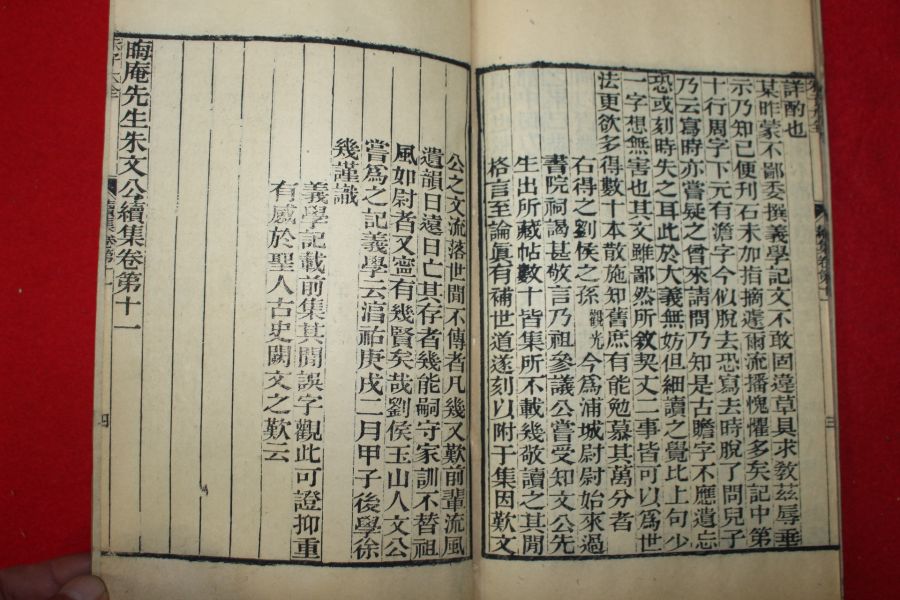 詳酌也
某昨蒙不鄙委撰義學記文不敢固違草具求敎茲辱垂
示乃知已便刋石未加指摘遽爾流播愧懼多矣記中第
十行周字下元有澹字今似脫去恐寫去時脫了問兒子
乃云寫時亦嘗疑之曾來請問乃知是古贍字不應遺忘
恐或刻時失之耳此於大義無妨但細讀之覺比上句少
一字想無害也其文雖鄙然所敘契丈二事皆可以爲世
法更欲多得數十本散施知舊庶有能勉慕其萬分者
右得之劉侯之孫觀光今爲浦城尉尉始來過
書院祠謁甚敬言乃祖參議公嘗受知文公先
生出所藏帖數十皆集所不載幾敬讀之其閒
格言至論眞有補世道遂刻以附于集因歎文
三
公之文流落世閒不傳者凡幾又歎前輩流風
遺韻日遠日亡其存者幾能嗣守家訓不替祖
風如尉者又寧有幾賢矣哉劉侯玉山人文公
嘗爲之記義學云淳祐庚戌二月甲子後學徐
幾謹識
義學記載前集其閒誤字觀此可證抑重
有感於聖人古史闕文之歎云
晦庵先生朱文公續集卷第十一
朱子大全
續集卷第十一
四